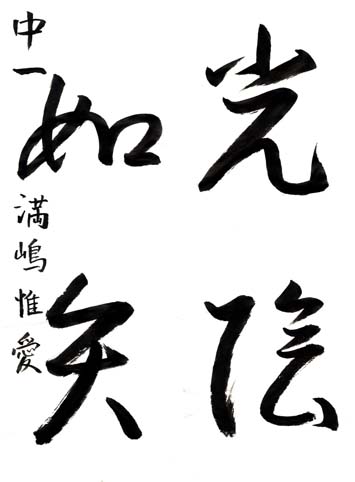 光陰
如矢
中一 満嶋惟愛